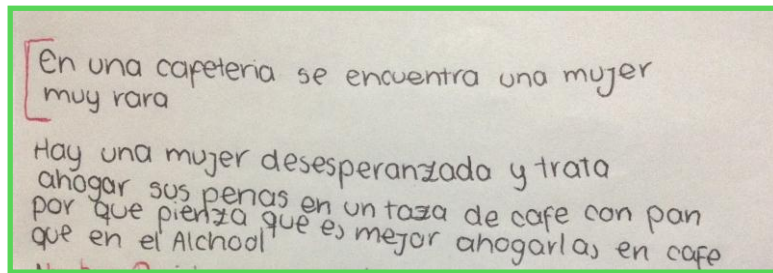 En una cafeteria se encuentra una mujer
muy rara
Hay una mujer desesperanzada y trata
ahogar sus penas en un taza de cafe con pan
por que pienza que es mejor ahogarlas en cafe
que en el Alchool